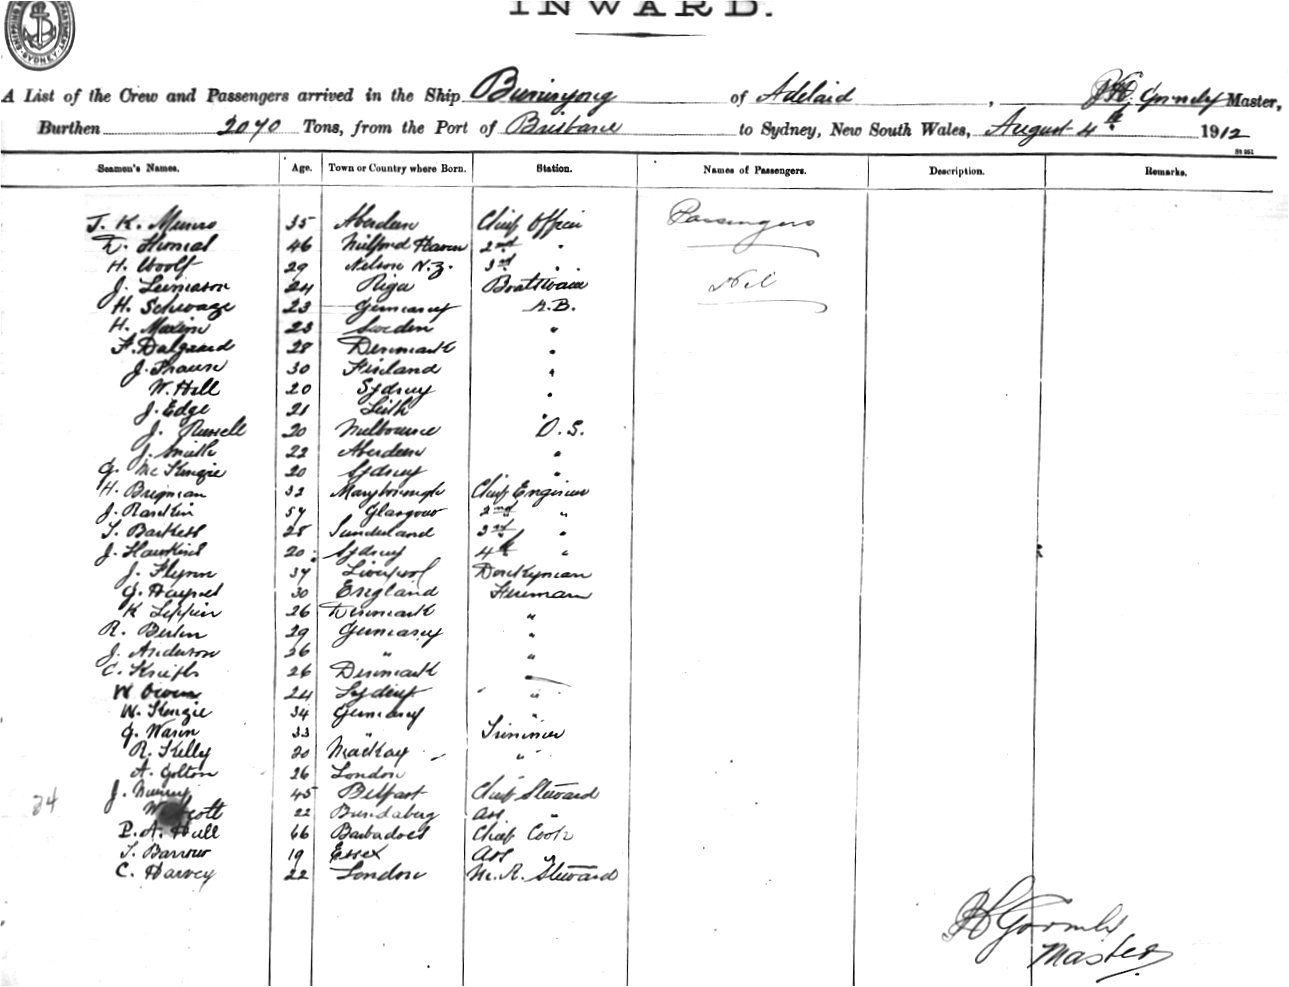 INWARD.
A List of the Crew and Passengers arrived in the Ship Buninyong of Adelaid, Master,
Burthen 2070 Tons, from the Port of Brisbane to Sydney, New South Wales, August 4th 1912
Seamen's Names. Age. Town or Country where Born. Station. Names of Passengers. Description. Remarks.
J. K. Munro 35 Aberdeen Chief Officer Passengers
46 Milford Haven 2nd "
H. Woolf 29 Nelson N.Z. 3rd "
J. 24 Riga Boatswain Nil
H. Schwage 23 Germany A.B.
H. 23 Sweden "
F. Dalgaard 28 Denmark "
J. 30 Finland "
W. Hill 20 Sydney "
J. Edge 21 Leith "
J. Russell 20 Melbourne O.S.
J. Smith 22 Aberdeen "
G. McKenzie 20 Sydney "
H. 32 Maryborough Chief Engineer
J. Rankin 57 Glasgow 2nd "
T. 28 Sunderland 3rd "
J. Hawkins 20 Sydney 4th "
J. Flynn 37 Liverpool Donkeyman
G. 30 England Fireman
K. 26 Denmark "
R. Berlin 29 Germany "
J. Anderson 26 " "
C. 26 Denmark "
W Owen 24 Sydney "
W. Kenzie 34 Germany "
G. 33 " Trimmer
R. Kelly 20 Mackay "
A. Golton 26 London
J. Murray 45 Belfast Chief Steward
W. Scott 22 Bundaberg Ass "
34
P. A. Hull 66 Barbadoes Chief Cook
T. Barrow 19 Essex Ass "
C. Harvey 22 London M. R. Steward
Master